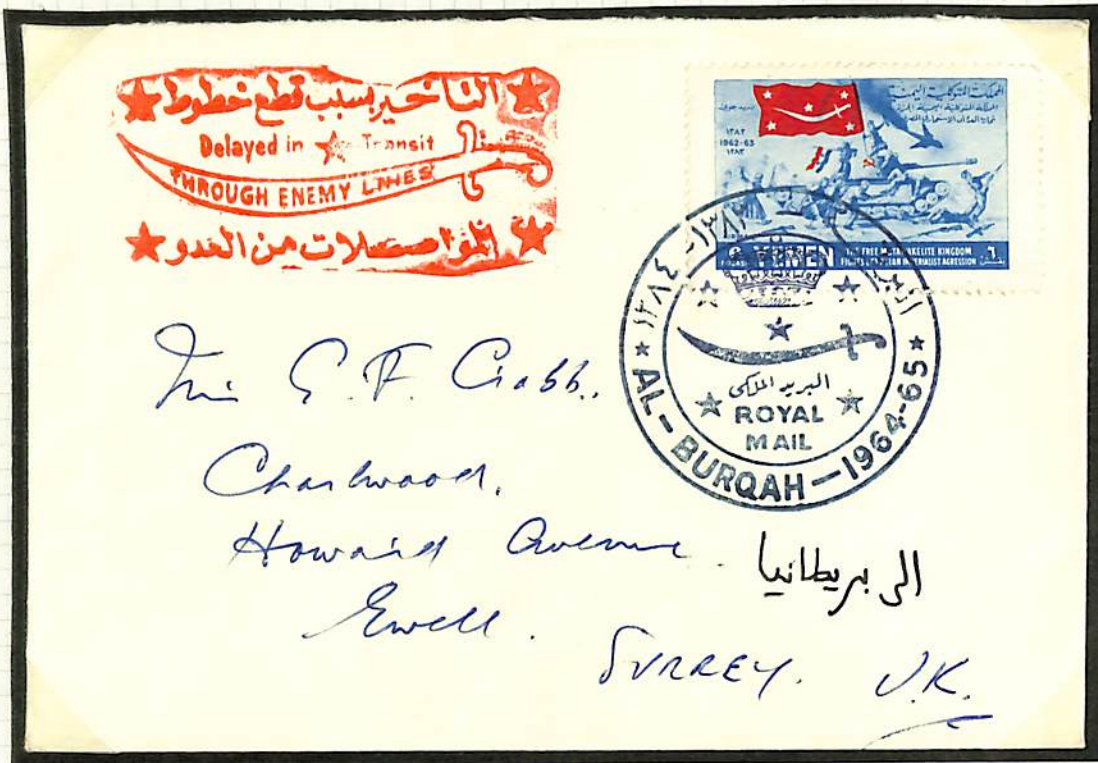 التأخير بسبب قطع خطوط
Delayed in Transit
THROUGH ENEMY LINES
المواصلات من العدو
المملكة المتوكلية اليمنية
١٣٨٢
1962-63
١٣٨٣
6 YEMEN THE FREE MUTAWAKELITE KINGDOM
FIGHTS EGYPTIAN IMPERIALIST AGRESSION ٦
١٣٨٤-١٣٨٣
البريد الملكي
ROYAL
MAIL
AL-BURQAH-1964-65
G. F. Crabb.
Charlwood.
Howard Avenue
Ewell.
الى بريطانيا
SURREY. U.K.